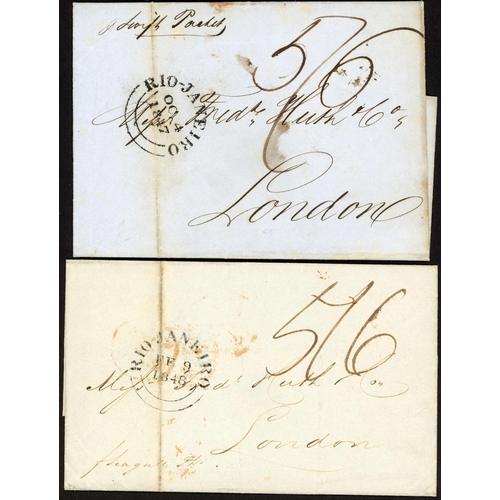 p Swift Packet
5/6
RIO-JANEIRO
OC
184
Messrs Fredk Huth & Co
London
5/6
RIO-JANEIRO
FE 9
1848
Messrs Fredk Huth & Co
London
p Seagull Pt